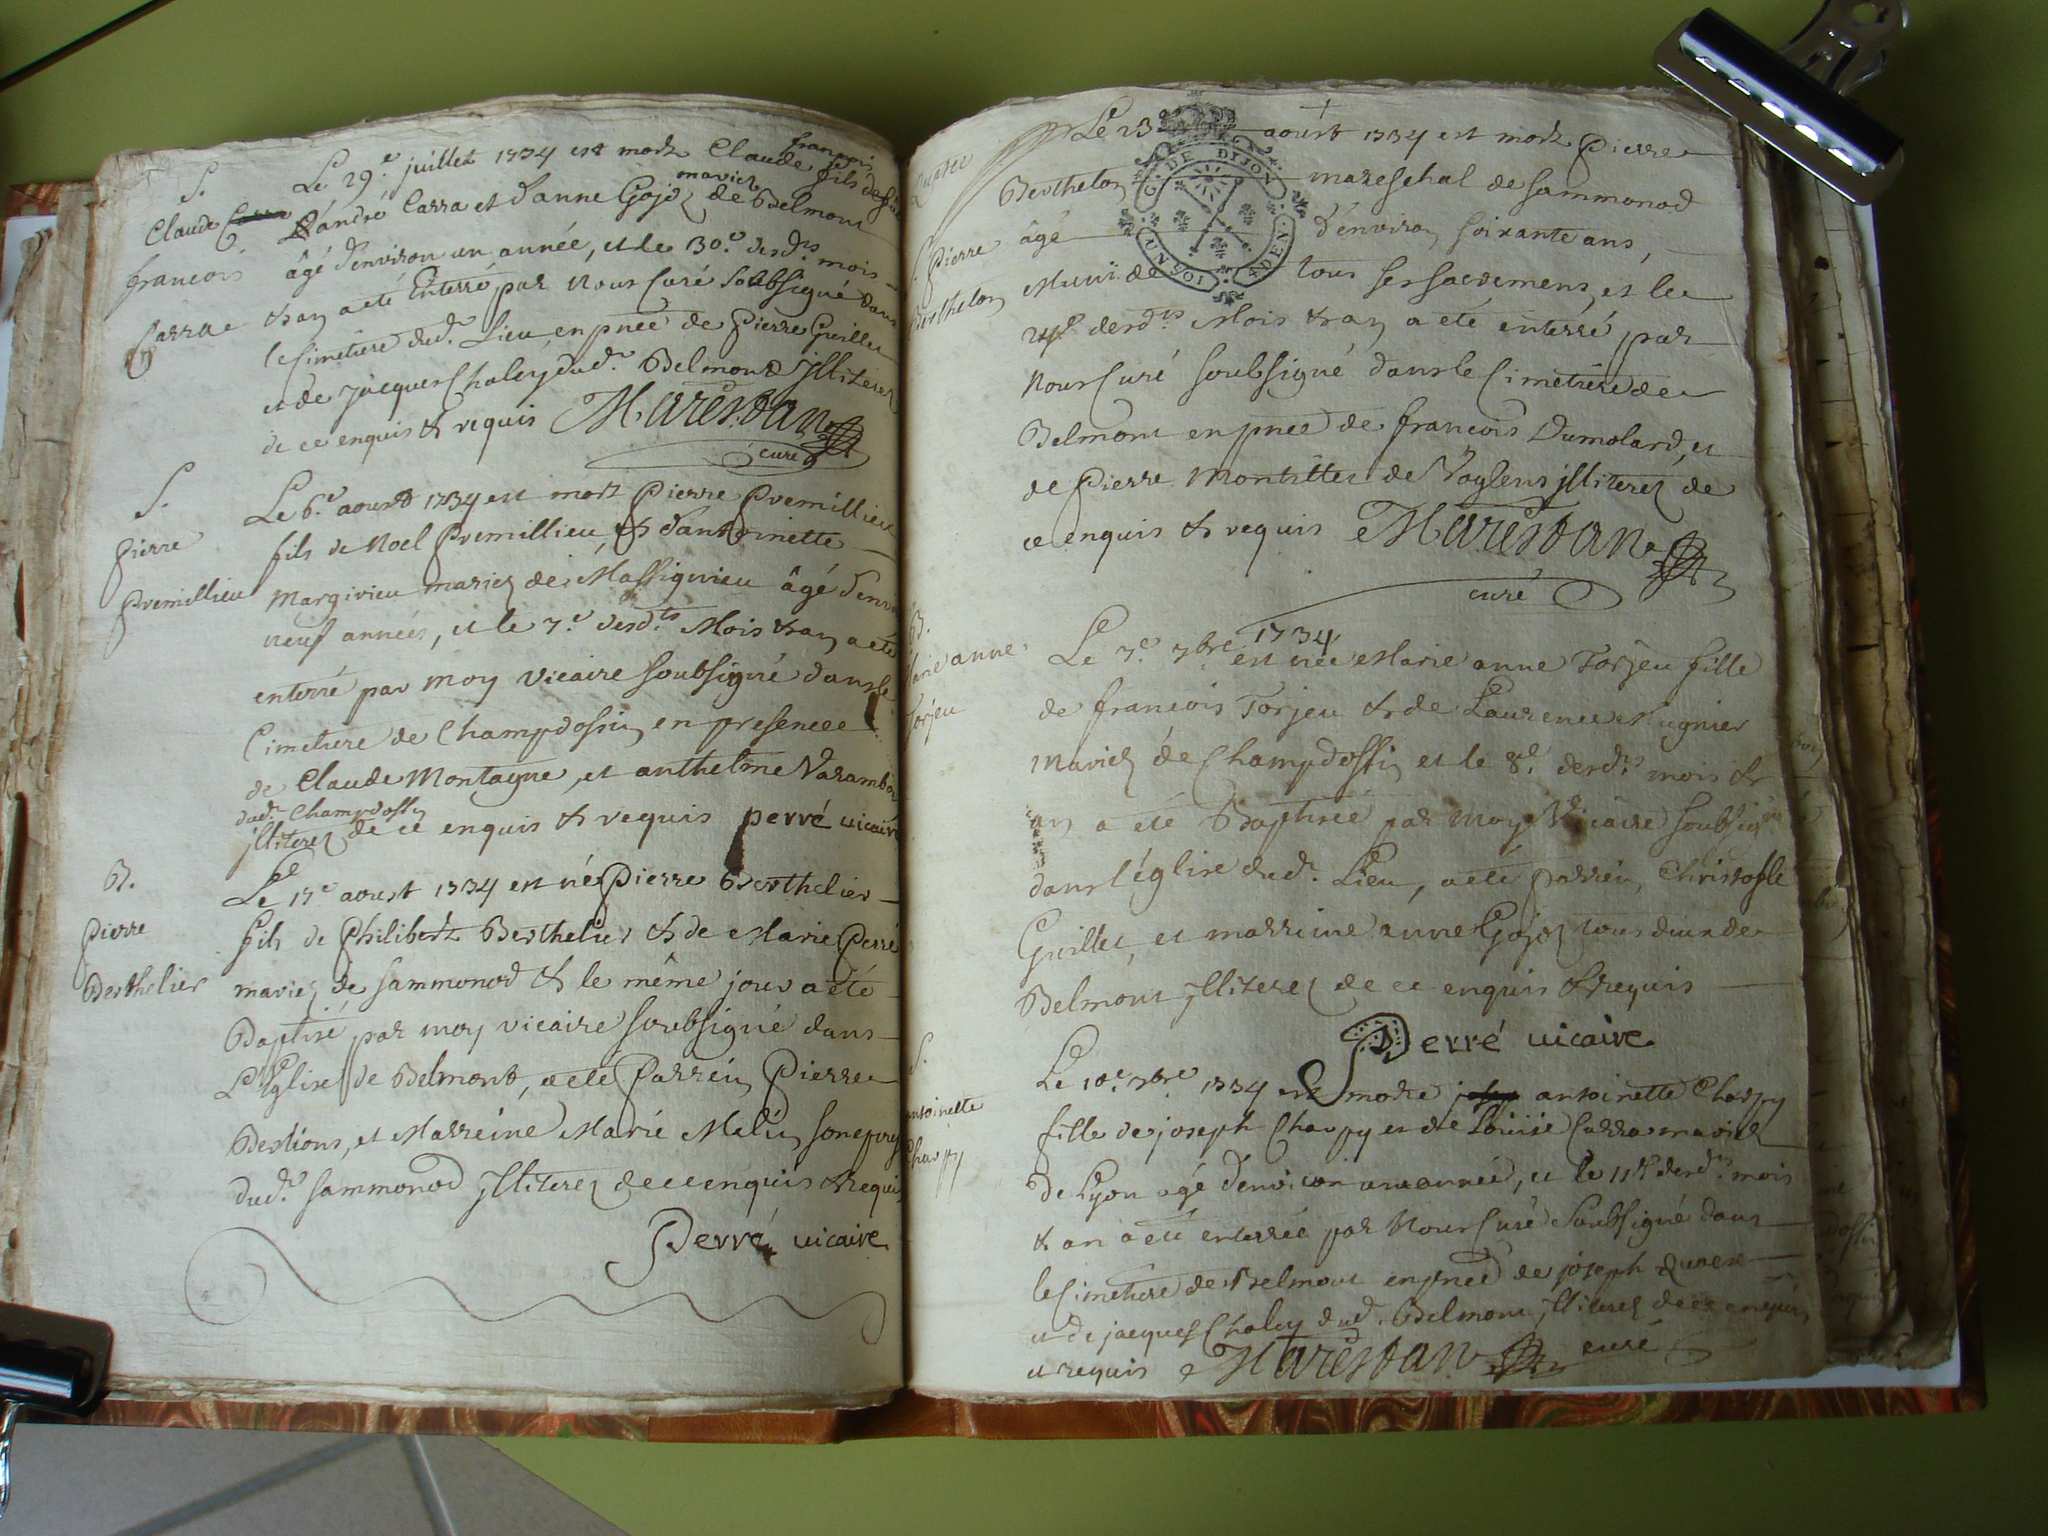 S.
Claude
françois
Carra
Le 29.e juillet 1734 est mort Claude françois fils
d'andré Carra et d'anne Gojoz mariez de Belmont
âgé d'environ un année, et le 30.e desd.ts mois
& an a eté Enterré par Nous Curé Soubsigné dans
le Cimetiere dud.t Lieu, en pnce de Pierre Guillet
et de Jacques Chaley dud.t Belmont jlliterez
de ce enquis & requis Marestan
curé
S.
Pierre
Premillieu
Le 6.e aoust 1734 est mort Pierre Premillieu
fils de Noel Premillieu, & d'anthoinette
Margivieu mariez de Massignieu âgé d'env
neuf années, et le 7.e desd.ts Mois & an a eté
enterré par moy vicaire soubsigné dans le
Cimetiere de Champdossin en presence
de Claude Montagne, et anthelme Varambo
dud.t Champdossin
jlliterez de ce enquis & requis Perré vicaire
B.
Pierre
Berthelier
Le 17e aoust 1734 est né Pierre Berthelier
fils de Philibert Berthelier & de Marie Perré
mariez de Sammonod & le même jour a eté
Baptisé par moy vicaire soubsigné dans
L'Eglise de Belmont, a eté Parrein Pierre
Berlions, et Marreine Marie Melin
dud.t Sammonod jlliterez de ce enquis & requis
Perré vicaire
Pierre
Berthelon
Le 23e aoust 1734 est mort Pierre
Berthelon mareschal de Sammonod
âgé d'environ soixante ans,
Muni de tous ses sacremens, et le
24.e desd.ts Mois & an a eté enterré par
Nous Curé soubsigné dans le Cimetiere de
Belmont en pnce de françois Dumolard, et
de Pierre Montillet de Voylens jlliterez de
ce enquis & requis Marestan
curé
G. DE DIJON
B.
Marie anne
Torjeu
Le 7.e 7bre 1734 est née Marie anne Torjeu fille
de françois Torjeu & de Laurence Mugnier
Mariez de Champdossin et le 8.e desd.ts mois &
an a eté Baptisée par moy Vicaire soubsigné
dans l'église dud.t Lieu, a eté parrein, Christophle
Guillet, et marreine anne Gojoz tous deux de
Belmont jlliterez de ce enquis & requis
Perré vicaire
S.
antoinette
Charpy
Le 10.e 7bre 1734 est morte antoinette Charpy
fille de joseph Charpy et de Louise Carra mariez
de Lyon agé d'environ une année, et le 11e desd.ts mois
& an a eté enterrée par Nous Curé Soubsigné dans
le Cimetiere de Belmont en pnce de joseph
et de jacques Chaley dud.t Belmont jlliterez de ce enquis
et requis Marestan curé